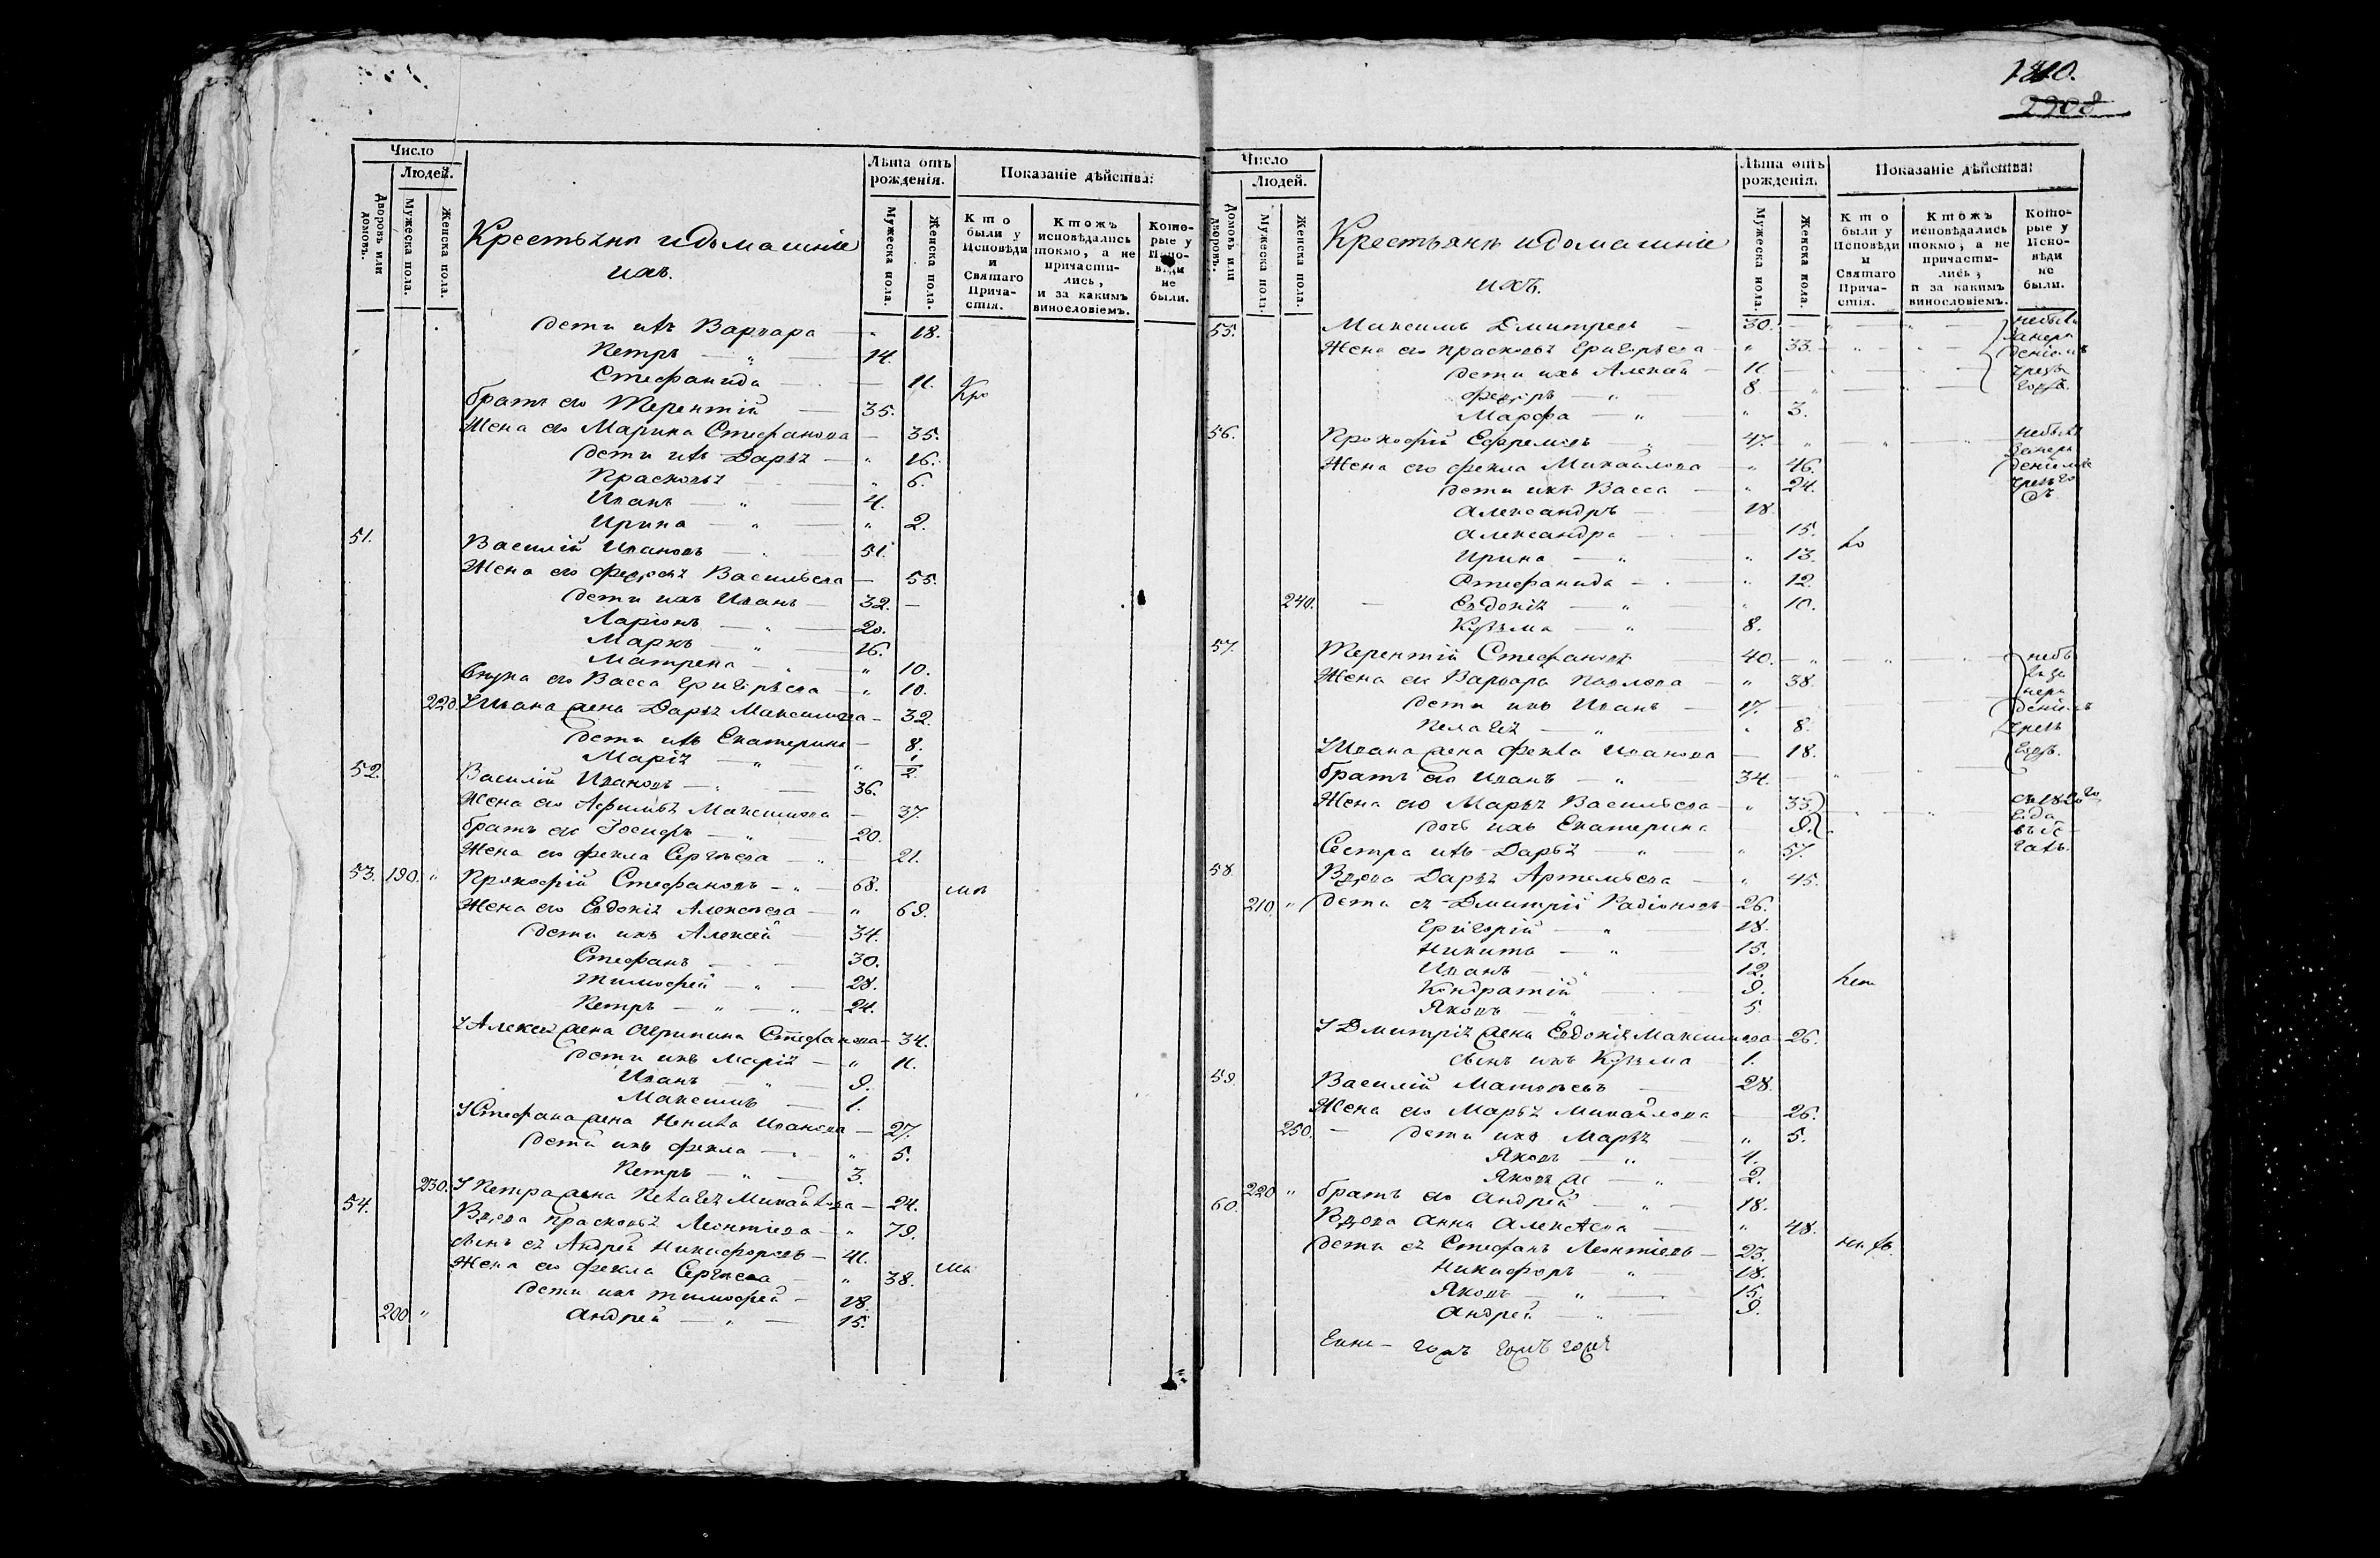 1810.
2908
Число
Людей.
Дворовъ или домовъ.
Мужеска пола.
Женска пола.
Крестьяне и домашніе
ихъ.
Лѣта отъ рожденія.
Мужеска пола.
Женска пола.
Показаніе дѣйства:
Кто были у Исповѣди и Святаго Прича- стія.
Ктожъ исповѣдались токмо, а не причасти- лись, и за какимъ винословіемъ.
Кото- рые у Испо- вѣди не были.
дети ихъ Варвара — 18.
Петръ — 14.
Стефанида — 11.
братъ его Терентій — 35.
Жена его Марина Стефанова — 35.
дети ихъ Дарья — 16.
Прасковья — 6.
Иванъ — 4.
Ирина — 2.
51. Василій Ивановъ — 51.
Жена его Федосья Васильева — 55.
дети ихъ Иванъ — 32. —
Ларіонъ — 20.
Маркъ — 16.
Матрена — 10.
Внука его Васса Григорьева — 10.
220. У Ивана жена Дарья Максимова — 32.
дети ихъ Екатерина — 8.
Марія — 1/2
52. Василій Ивановъ — 36.
Жена его Афимья Максимова — 37.
братъ его Іосифъ — 20.
Жена его Фекла Сергѣева — 21.
53. 190. " Прокофій Стефановъ — 68.
Жена его Евдокія Алексѣева — 69.
дети ихъ Алексей — 34.
Стефанъ — 30.
Тимофей — 28.
Петръ — 24.
У Алексея жена Агрипина Стефанова — 34.
дети ихъ Марія — 11.
Иванъ — 9.
Максимъ — 1.
У Стефана жена Ненила Иванова — 27.
дети ихъ Фекла — 5.
Петръ — 3.
230. У Петра жена Пелагея Михайлова — 24.
54. Вдова Прасковья Леонтіева — 79.
сынъ ея Андрей Никифоровъ — 41.
Жена его Фекла Сергѣева — 38.
дети ихъ Тимофей — 18.
200 " Андрей — 15.
Число
Людей.
Домовъ или дворовъ.
Мужеска пола.
Женска пола.
Крестьяне и домашніе
ихъ.
Лѣта отъ рожденія.
Мужеска пола.
Женска пола.
Показаніе дѣйства:
Кто были у Исповѣди и Святаго Прича- стія.
Ктожъ исповѣдались токмо, а не причасти- лись, и за какимъ винословіемъ.
Кото- рые у Испо- вѣди не были.
55. Максимъ Дмитріевъ — 30.
Жена его Прасковья Григорьева — 33.
дети ихъ Алексей — 11.
Федоръ — 8
Марфа — 3.
56. Прокофій Ефремовъ — 47.
Жена его Фекла Михайлова — 46.
дети ихъ Васса — 24.
Александръ — 18
Александра — 15.
Ирина — 13.
Стефанида — 12.
240. — Евдокія — 10.
Кузьма — 8.
57. Терентій Стефановъ — 40.
Жена его Варвара Павлова — 38.
дети ихъ Иванъ — 17.
Пелагея — 8.
У Ивана жена Фекла Иванова — 18.
братъ его Иванъ — 34.
Жена его Марья Васильева — 33.
дочь ихъ Екатерина — 9.
Сестра ихъ Дарья — 57.
58. Вдова Дарья Артемьева — 45.
210. " дети ея Дмитрій Радіоновъ — 26.
Григорій — 18.
Никита — 15.
Иванъ — 12.
Кондратій — 9.
Яковъ — 5
У Дмитрія жена Евдокія Максимова — 26.
сынъ ихъ Кузьма — 1.
59. Василій Матвѣевъ — 28.
Жена его Марья Михайлова — 26.
250. — дети ихъ Марья — 5.
Яковъ — 4.
Яковъ же — 2.
220 " братъ его Андрей — 18.
60. Вдова Анна Алексѣева — 48.
дети ея Стефанъ Леонтіевъ — 23.
Никифоръ — 18.
Яковъ — 15.
Андрей — 9.